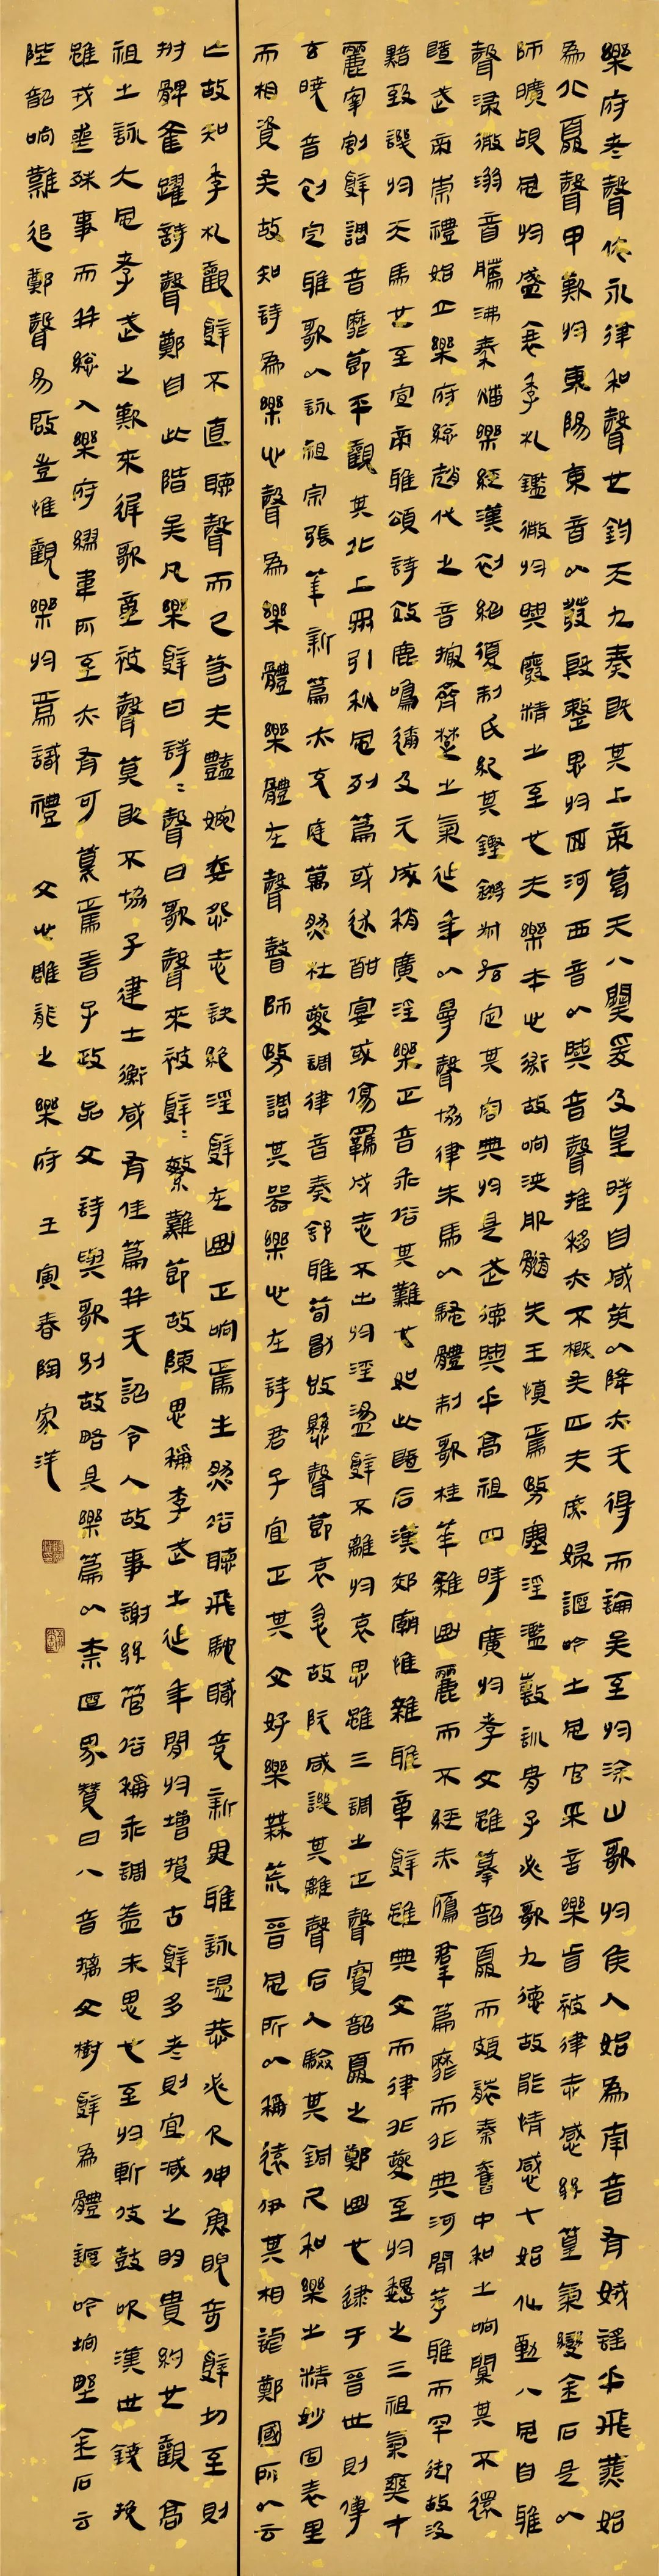 樂府者聲依永律和聲也鈞天九奏既其上帝葛天八闋爰及皇時自咸英以降亦无得而論矣至於涂山歌於侯人始為南音有娀謠乎飛燕始
為北夏聲甲歎於東陽東音以發殷整思於西河西音以興音聲推移亦不概矣匹夫庶婦謳吟土風官采言樂胥被律志感絲篁氣變金石是以
師曠覘風於盛衰季札鑑微於興廢精之至也夫樂本心術故响浹肌髓先王慎焉務塞淫濫敷訓胄子必歌九德故能情感七始化動八風自雅
聲浸微溺音騰沸秦燔樂經漢初紹復制氏紀其鏗鏘叔孫定其容典於是武德興乎高祖四時廣於孝文雖摹韶夏而頗襲秦舊中和之响闃其不還
暨武帝崇禮始立樂府總趙代之音撮齊楚之氣延年以曼聲協律朱馬以騷體制歌桂華雜曲麗而不經赤雁群篇靡而非典河間薦雅而罕御故汲
黯致譏於天馬也至宣帝雅頌詩效鹿鳴邇及元成稍廣淫樂正音乖俗其難也如此暨后漢郊廟惟雜雅章辭雖典文而律非夔至於魏之三祖氣爽才
麗宰割辭調音靡節平觀其北上眾引秋風列篇或述酣宴或傷羈戍志不出於淫盪辭不離於哀思雖三調之正聲實韶夏之鄭曲也逮于晉世則傅
玄曉音創定雅歌以詠祖宗張華新篇亦充庭萬然杜夔調律音奏舒雅荀勖改懸聲節哀急故阮咸譏其離聲后人驗其銅尺和樂之精妙固表里
而相資矣故知詩為樂心聲為樂體樂體在聲瞽師務調其器樂心在詩君子宜正其文好樂無荒晉風所以稱遠伊其相謔鄭國所以云
亡故知季札觀辭不直聽聲而已若夫艷婉孌怨志訣絕淫辭在曲正响焉生然俗聽飛馳職競新異雅詠溫恭必欠伸魚睨奇辭切至則
拊髀雀躍詩聲鄭自此階矣凡樂辭曰詩〻聲曰歌聲來被辭〻繁難節故陳思稱李武之延年閑於增損古辭多者則宜減之明貴約也觀高
祖之詠大風孝武之歎來遲歌童被聲莫敢不協子建士衡咸有佳篇并无詔令人故事謝絲管俗稱乖調蓋未思也至於斬伎鼓吹漢世鐃挽
雖戎喪殊事而并總入樂府繆韋所至亦有可算焉昔子政品文詩與歌別故略具樂篇以標區界贊曰八音摛文樹辭為體謳吟坰野金石云
陛韶响難追鄭聲易啟豈惟觀樂於焉識禮 文心雕龍之樂府 壬寅春陶家洋